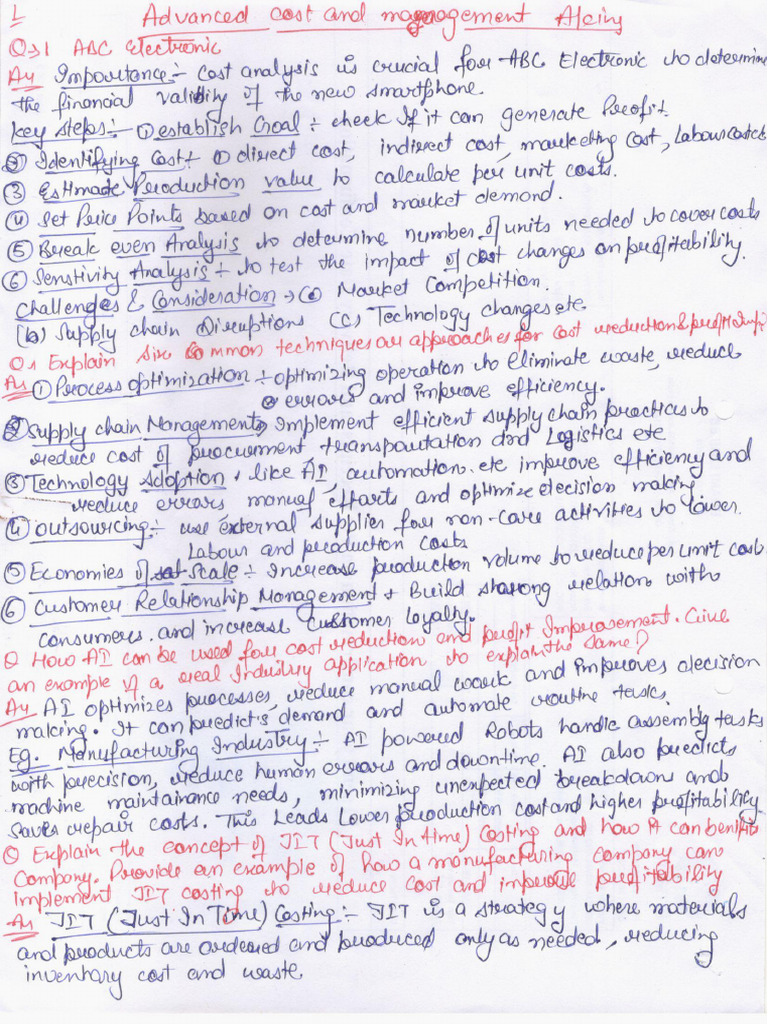 1 Advanced cost and management A/cing
Q>1 ABC Electronic
An Importance :- cost analysis is crucial four ABC Electronic to determine
the financial validity of the new smartphone.
Key steps :- ① establish Goal :- check If it can generate Profit.
② Identifying cost :- ① direct cost, indirect cost, marketing cost, Labour cost etc
③ Estimate Production value to calculate per unit costs.
④ Set Price Points based on cost and market demand.
⑤ Break even Analysis to determine number of units needed to cover costs
⑥ Senstivity Analysis :- to test the impact of cost changes on profitability.
Challenges & Consideration → (a) Market Competition.
(b) Supply chain Disruptions (c) Technology changes etc.
Q> Explain six common techniques or approaches for cost reduction & profit Imp?
An ① Process optimization :- optimizing operation to eliminate waste, reduce
errors and improve efficiency.
② Supply chain Management → Implement efficient supply chain practices to
reduce cost of procurement transportation and Logistics etc
③ Technology Adoption :- like AI, automation etc improve efficiency and
reduce errors manual efforts and optimize decision making
④ Outsourcing :- use external supplier four non-core activities to lower
Labour and production costs
⑤ Economies of Scale :- Increase production volume to reduce per unit cost.
⑥ Customer Relationship Management :- Build strong relation with
consumers. and increase Customer loyalty.
Q How AI can be used four cost reduction and profit Improvement. Give
an example of a real Industry application to explain the same?
An AI optimizes processes, reduce manual work and improves decision
making. It can predicts demand and automate routine tasks.
Eg. Manufacturing Industry :- AI powered Robots handle assembly tasks
with precision, reduce human errors and downtime. AI also predicts
machine maintainance needs, minimizing unexpected breakdown and
saves repair costs. This Leads Lower production cost and higher profitability
Q Explain the concept of JIT (Just In time) Costing and how it can benifits
Company. Provide an example of how a manufacturing company can
implement JIT costing to reduce cost and improve profitability
An JIT (Just In Time) Costing :- JIT is a strategy where materials
and products are ordered and produced only as needed, reducing
inventory cost and waste.